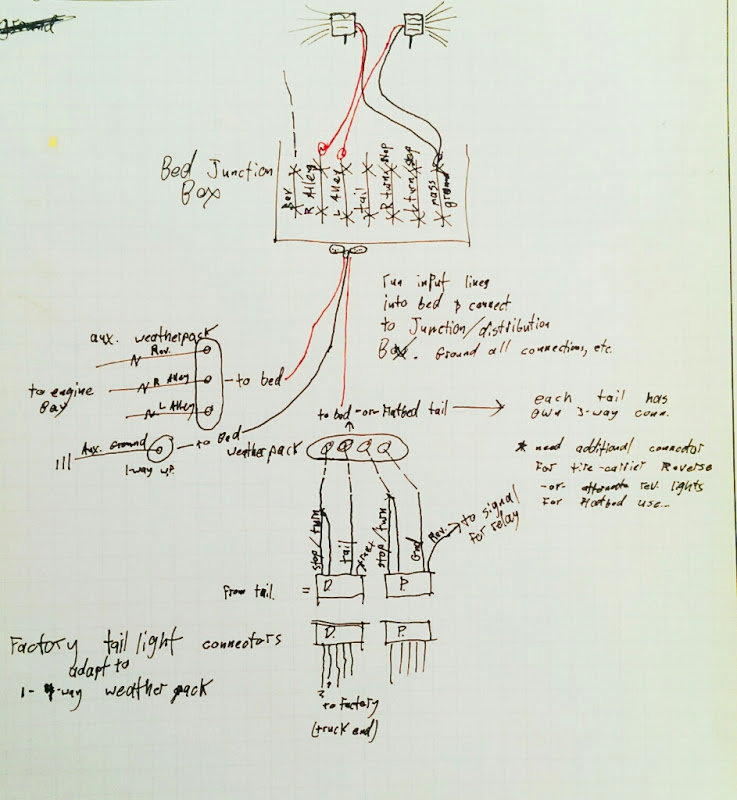 ground
Bed Junction
Box
Rev
R Alley
L Alley
tail
R turn/stop
L turn/stop
mass
ground
run input lines
into bed & connect
to Junction/distribution
Box. Ground all connections, etc.
aux. weatherpack
Rev.
R Alley
L Alley
to engine
Bay
to bed
Aux. Ground
1-way w.p.
to Bed
weatherpack
to bed -or- Flatbed tail
each tail has
own 3-way conn.
* need additional connector
For tire-carrier Reverse
-or- alternate rev. lights
For Flatbed use...
stop/turn
tail
stop/turn
Gnd
Rev.
to signal
for relay
From tail. =
D.
P.
Factory tail light connectors
adapt to
1- 4-way weather pack
D.
P.
to Factory
(truck end)